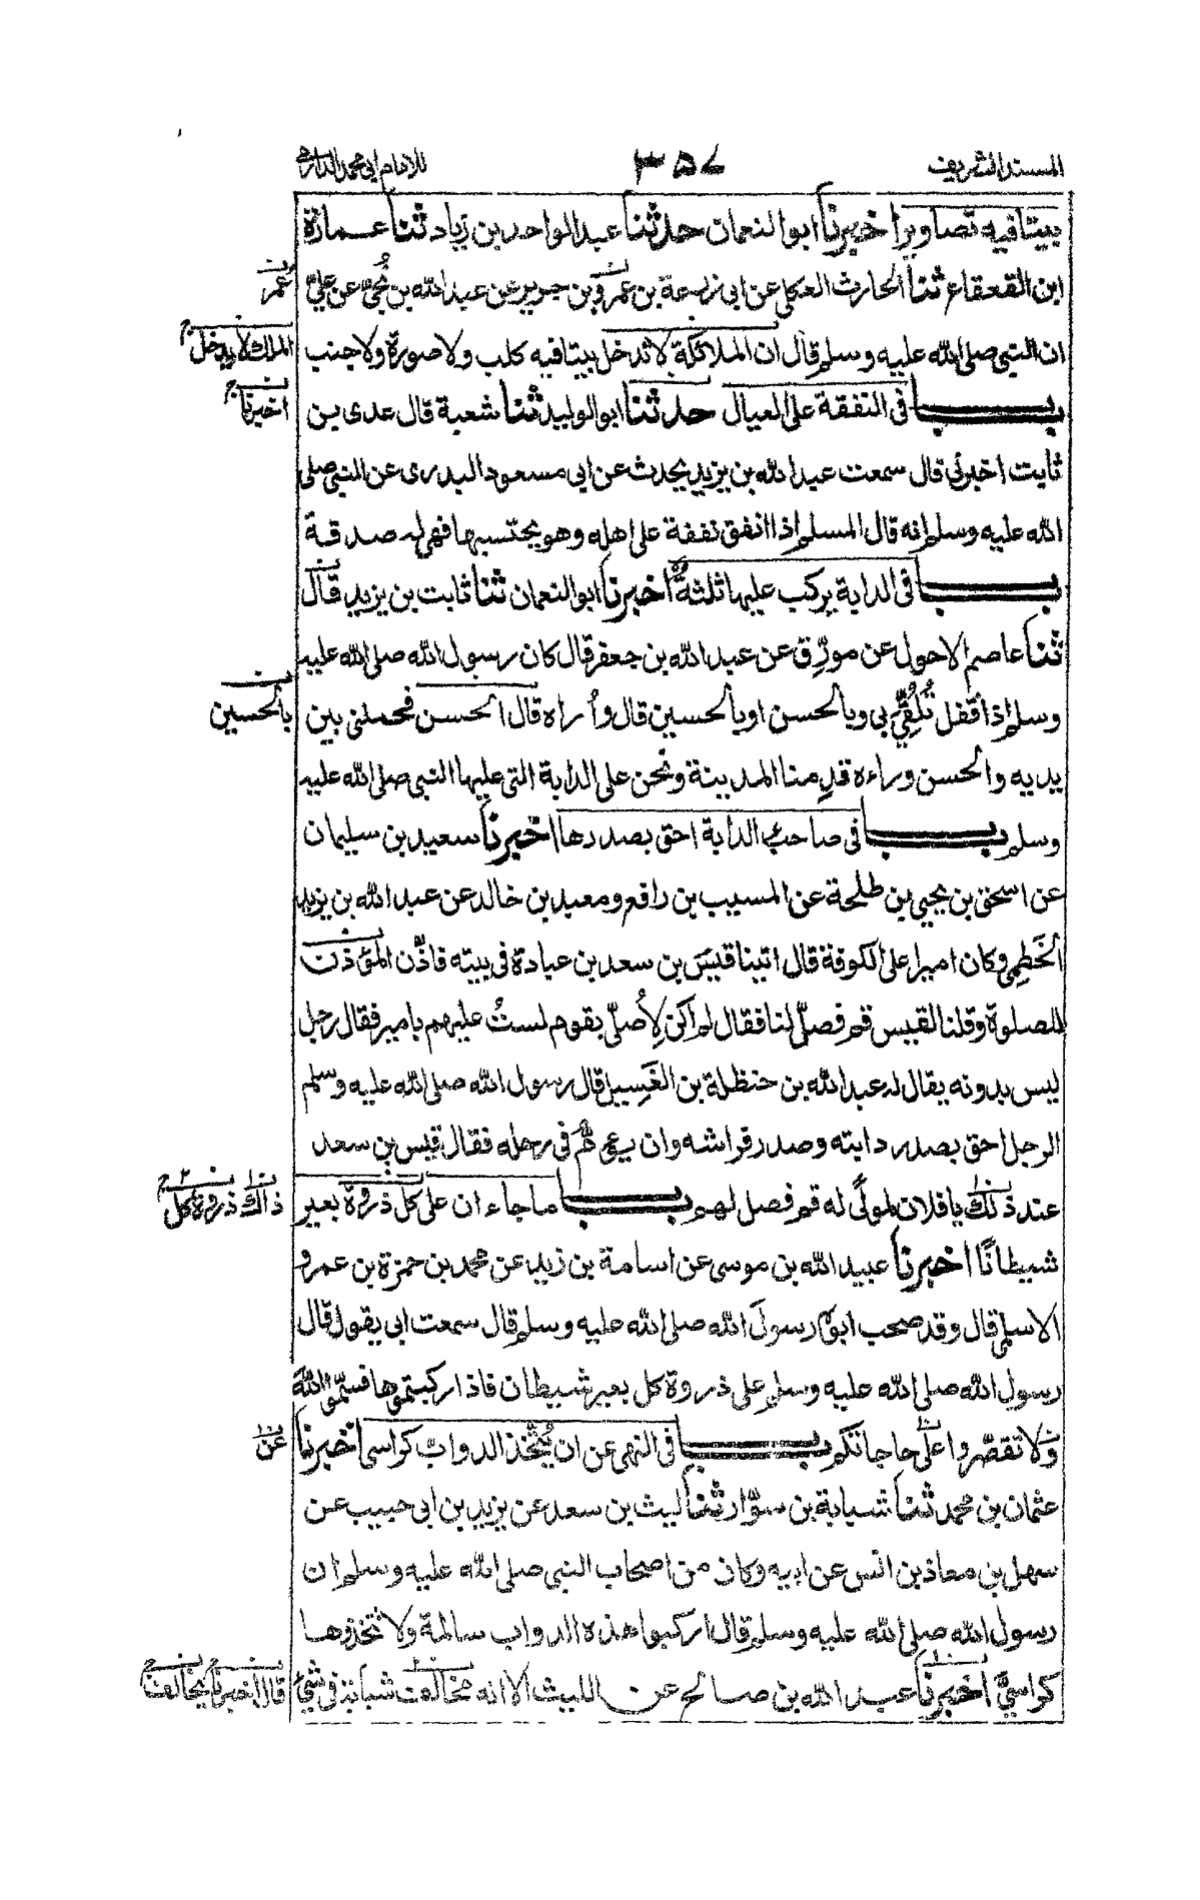 المسند الشريف ٣٥٧ للامام ابى محمد الدارمى
بيتا فيه تصاوير اخبرنا ابو النعمان حدثنا عبد الواحد بن زياد ثنا عمارة
ابن القعقاع ثنا الحارث العكلى عن ابى زرعة بن عمرو بن جرير عن عبد الله بن نُجَىّ عن علىّ
عُمر
ان النبى صلى الله عليه وسلم قال ان الملائكة لا تدخل بيتا فيه كلب ولا صورة ولا جنب
الملك لا يدخل
بــاب فى النفقة على العيال حدثنا ابو الوليد ثنا شعبة قال عدى بن
اخبرنا
ثابت اخبرنى قال سمعت عبد الله بن يزيد يحدث عن ابى مسعود البدرى عن النبى صلى
الله عليه وسلم انه قال المسلم اذا انفق نفقة على اهله وهو يحتسبها فهى له صدقة
بــاب فى الدابة يركب عليها ثلثةٌ اخبرنا ابو النعمان ثنا ثابت بن يزيد قال
ثنا عاصم الاحول عن مورّق عن عبد الله بن جعفر قال كان رسول الله صلى الله عليه
وسلم اذا قفل تُلُقِّىَ بى وبالحسن او بالحسين قال وأُراه قال الحسن فحملنى بين
بالحسين
يديه والحسن وراءه قدِمنا المدينة ونحن على الدابة التى عليها النبى صلى الله عليه
وسلم بــاب فى صاحب الدابة احق بصدرها اخبرنا سعيد بن سليمان
عن اسحق بن يحيى بن طلحة عن المسيب بن رافع ومعبد بن خالد عن عبد الله بن يزيد
الخَطمِى وكان اميرا على الكوفة قال اتينا قيسَ بن سعد بن عبادة فى بيته فاذّن المؤذن
للصلوة وقلنا لقيس قم فصلّ لنا فقال لم اكن لِأُصلّى بقوم لستُ عليهم بامير فقال رجل
ليس بدونه يقال له عبد الله بن حنظلة بن الغَسِيل قال رسول الله صلى الله عليه وسلم
الرجل احق بصدر دابته وصدر فراشه وان يؤم فى رحله فقال قيس بن سعد
عند ذلك يا فلان لمولًى له قم فصل لهم بــاب ما جاء ان على كل ذروة بعير
ذاك ذروة كل
شيطانًا اخبرنا عبيد الله بن موسى عن اسامة بن زيد عن محمد بن حمزة بن عمرو
الاسلمى قال وقد صحب ابوه رسولَ الله صلى الله عليه وسلم قال سمعت ابى يقول قال
رسول الله صلى الله عليه وسلم على ذروة كل بعير شيطان فاذا ركبتموها فسمّوا اللهَ
ولا تقصّروا على حاجاتكم بــاب فى النهى عن ان يُتَّخذ الدوابّ كراسى اخبرنا
عن
عثمان بن محمد ثنا شبابة بن سوّار ثنا ليث بن سعد عن يزيد بن ابى حبيب عن
سهل بن معاذ بن انس عن ابيه وكان من اصحاب النبى صلى الله عليه وسلم ان
رسول الله صلى الله عليه وسلم قال اركبوا هذه الدواب سالمة ولا تتخذوها
كراسىَّ اخبرنا عبد الله بن صالح عن الليث الا انه مخالفت شبابة فى شئ
قال اخبرنا يخالف